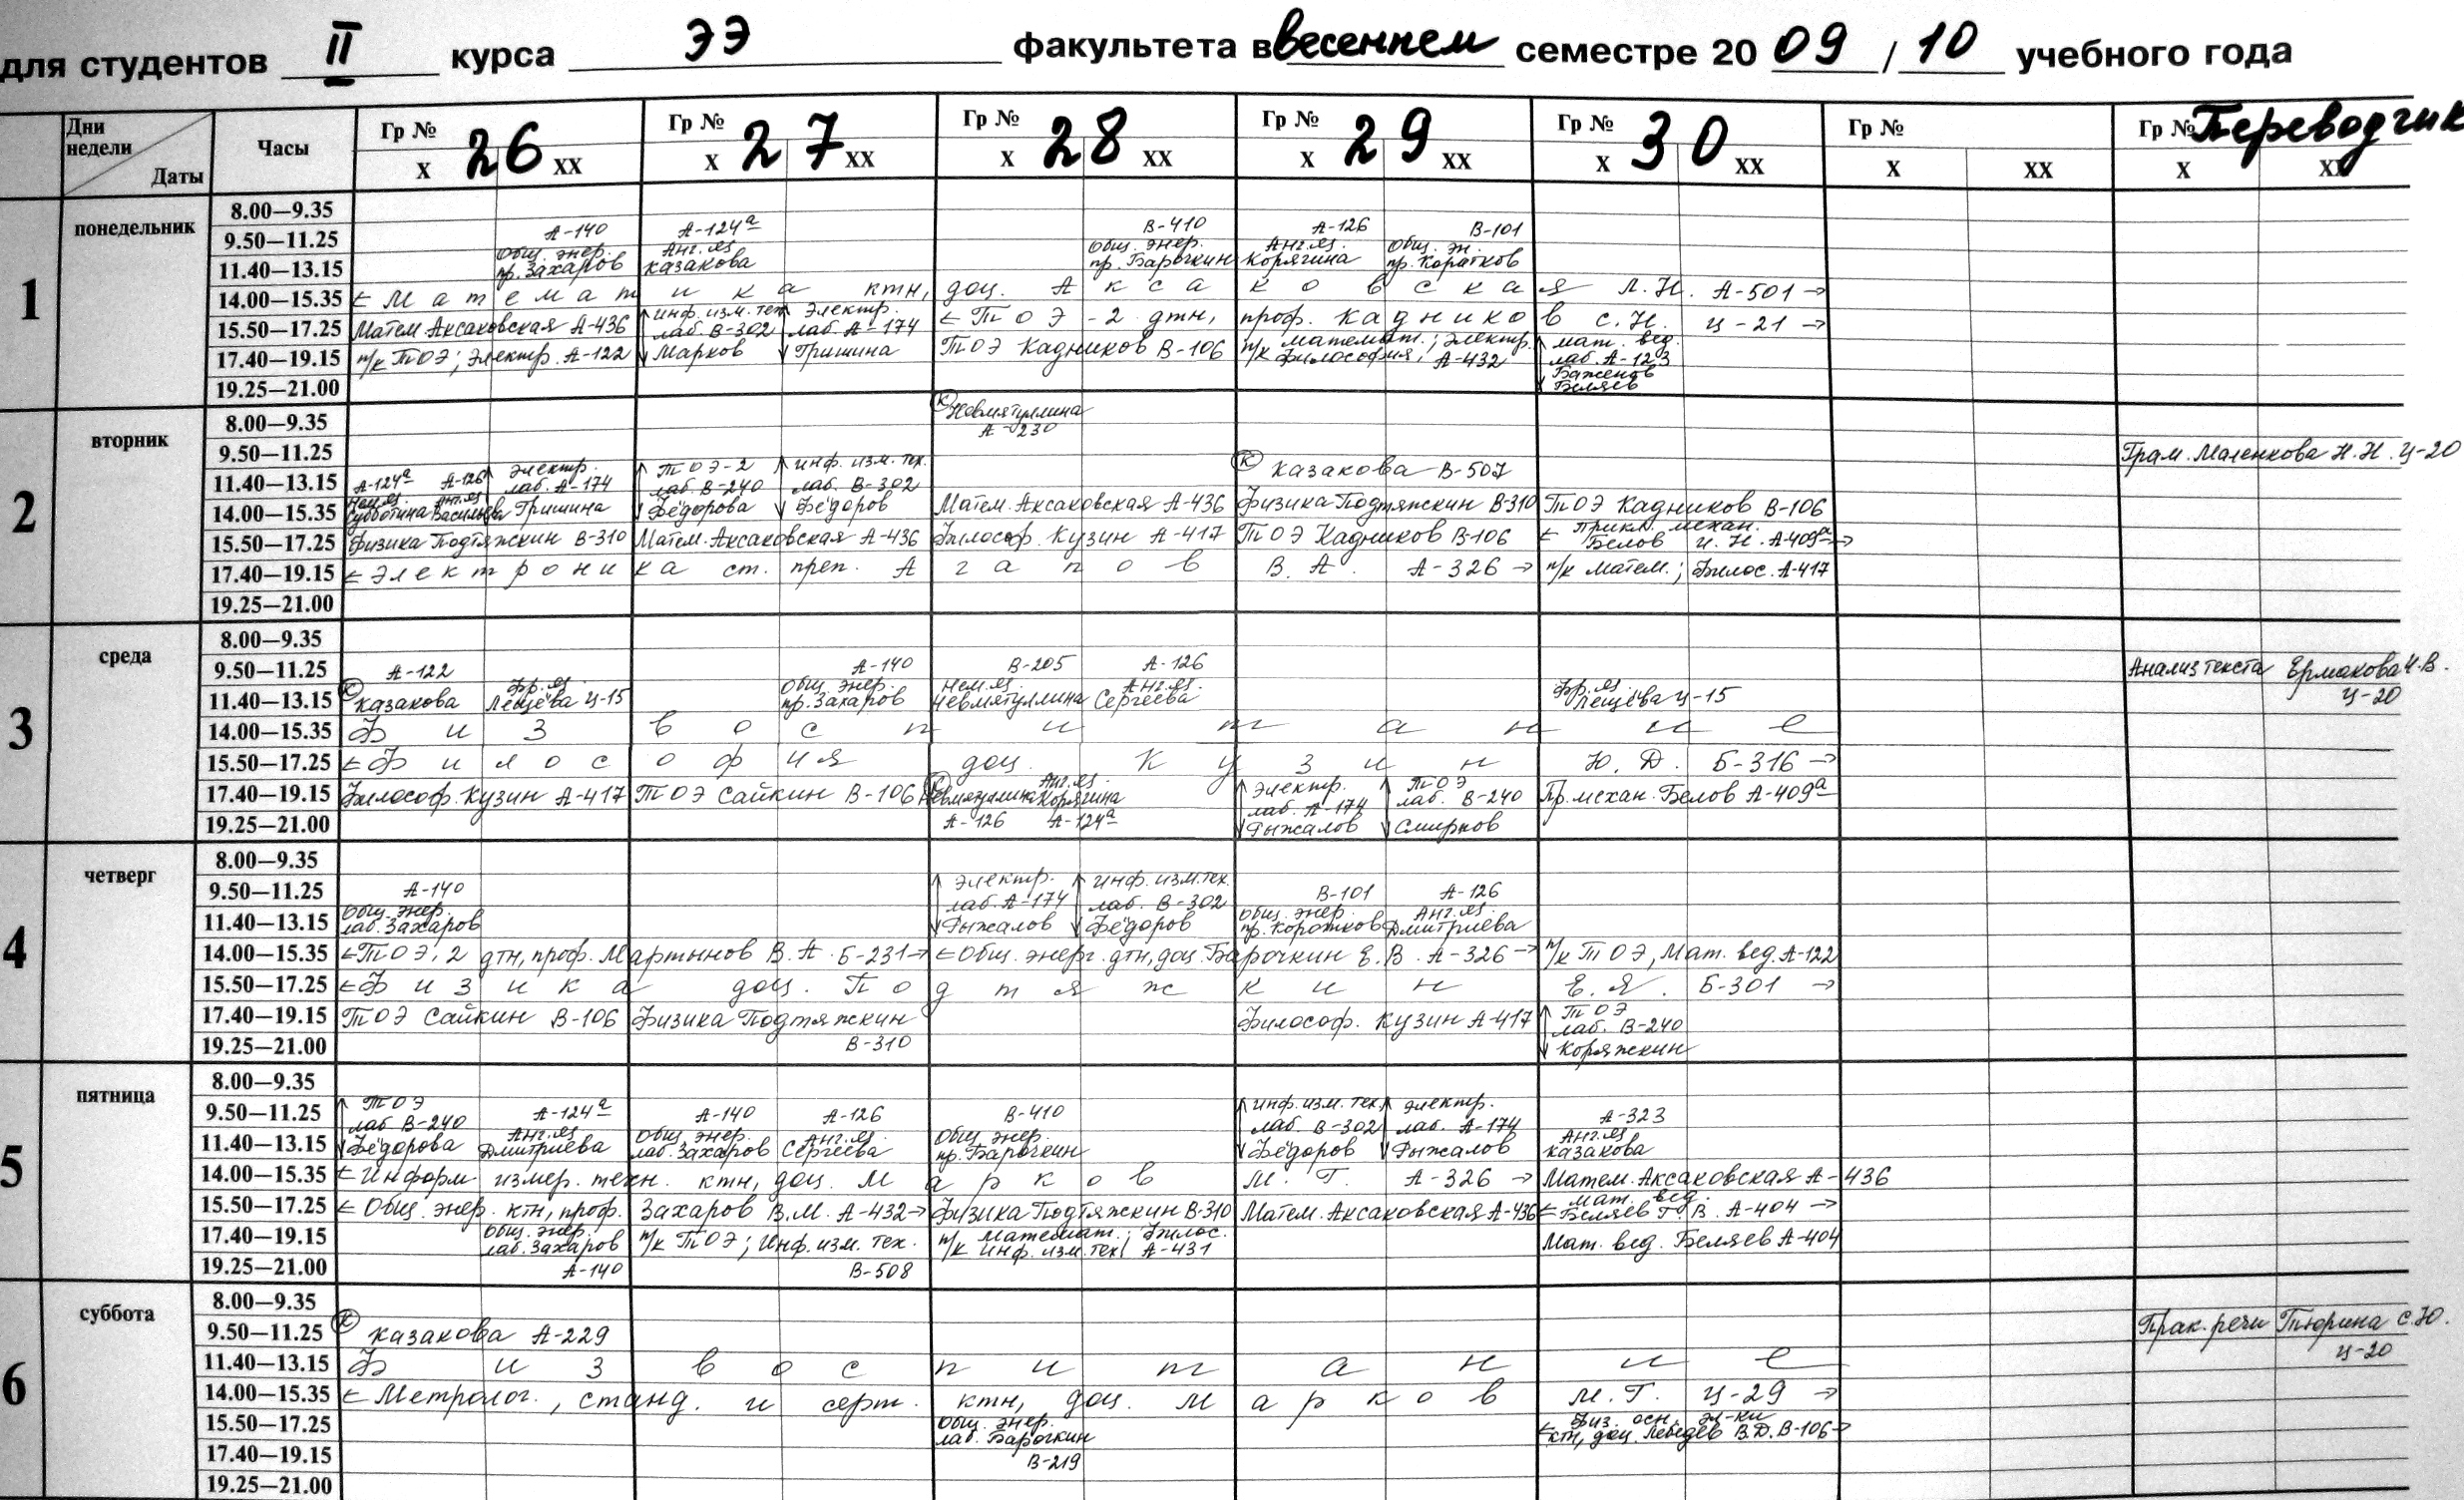 для студентов II курса ЭЭ факультета в весеннем семестре 20 09 / 10 учебного года
Дни недели Даты Часы Гр № 26 Гр № 27 Гр № 28 Гр № 29 Гр № 30 Гр № Гр № Переводчик
х хх х хх х хх х хх х хх х хх х хх
1 понедельник
8.00—9.35
9.50—11.25 А-140 А-124а В-410 А-126 В-101
11.40—13.15 Общ. энер. пр. Захаров Анг. яз Казакова Общ. энер. пр. Барочкин Анг. яз. Корягина Общ. эн. пр. Коротков
14.00—15.35 ← Математика ктн, доц. Аксаковская Л.Н. А-501 →
15.50—17.25 Матем. Аксаковская А-436 инф. изм. тех лаб. В-302 Электр. лаб. А-174 ← ТОЭ-2 дтн, проф. Кадников С.Н. Ц-21 →
17.40—19.15 п/к ТОЭ; Электр. А-122 Марков Гришина ТОЭ Кадников В-106 п/к математ.; Электр. Философия; А-432 мат. вед. лаб. А-123
19.25—21.00 Баженов Беляев
2 вторник
8.00—9.35 К Невмятуллина А-230
9.50—11.25 Грам. Маленкова Н.Н. Ц-20
11.40—13.15 А-124а А-126 Электр. лаб. А-174 ТОЭ-2 лаб. В-240 инф. изм. тех. лаб. В-302 К Казакова В-507
14.00—15.35 Нем. яз Субботина Анг. яз Васильева Гришина Фёдорова Фёдоров Матем. Аксаковская А-436 Физика Подтяжкин В-310 ТОЭ Кадников В-106
15.50—17.25 Физика Подтяжкин В-310 Матем. Аксаковская А-436 Философ. Кузин А-417 ТОЭ Кадников В-106 ← Прикл. механ. Белов И.Н. А-409а →
17.40—19.15 ← Электроника ст. преп. Агапов В.А. А-326 → п/к Матем.; Филос. А-417
19.25—21.00
3 среда
8.00—9.35
9.50—11.25 А-122 А-140 В-205 А-126 Анализ текста Ермакова
11.40—13.15 К Казакова Фр. яз Лещёва Ц-15 Общ. энер. пр. Захаров Нем. яз. Невмятуллина Анг. яз. Сергеева Фр. яз Лещёва Ц-15 Ц-20
14.00—15.35 Физвоспитание
15.50—17.25 ← Философия доц. Кузин Ю.Д. Б-316 →
17.40—19.15 Философ. Кузин А-417 ТОЭ Сайкин В-106 Невмятуллина Анг. яз. Корягина Электр. лаб. А-174 ТОЭ лаб. В-240 Пр. механ. Белов А-409а
19.25—21.00 А-126 А-124а Рыжалов Смирнов
4 четверг
8.00—9.35
9.50—11.25 А-140 Электр. лаб. А-174 инф. изм. тех. лаб. В-302 В-101 А-126
11.40—13.15 Общ. энер. лаб. Захаров Рыжалов Фёдоров Общ. энер. пр. Коротков Анг. яз. Дмитриева
14.00—15.35 ← ТОЭ, 2 дтн, проф. Мартынов В.А. Б-231 → ← Общ. энерг. дтн, доц. Барочкин Е.В. А-326 → п/к ТОЭ, Мат. вед. А-122
15.50—17.25 ← Физика доц. Подтяжкин Е.Я. Б-301 →
17.40—19.15 ТОЭ Сайкин В-106 Физика Подтяжкин Философ. Кузин А-417 ТОЭ лаб. В-240
19.25—21.00 В-310 Коряжкин
5 пятница
8.00—9.35
9.50—11.25 ТОЭ лаб В-240 А-124а А-140 А-126 В-410 инф. изм. тех. лаб. В-302 Электр. лаб. А-174 А-323
11.40—13.15 Фёдорова Анг. яз Дмитриева Общ. энер. лаб. Захаров Анг. яз. Сергеева Общ. энер. пр. Барочкин Фёдоров Рыжалов Анг. яз Казакова
14.00—15.35 ← Информ измер. техн. ктн, доц. Марков М.Г. А-326 → Матем. Аксаковская А-436
15.50—17.25 ← Общ. энер. ктн, проф. Захаров В.М. А-432 → Физика Подтяжкин В-310 Матем. Аксаковская А-436 ← мат. вед. Беляев Г.В. А-404 →
17.40—19.15 Общ. энер. лаб. Захаров п/к ТОЭ; Инф. изм. тех. п/к математ.; Филос. Инф. изм. тех А-431 Мат. вед. Беляев А-404
19.25—21.00 А-140 В-508
6 суббота
8.00—9.35
9.50—11.25 К Казакова А-229 Прак. речи Тюрина С.Ю.
11.40—13.15 Физвоспитание Ц-20
14.00—15.35 ← Метролог., станд. и серт. ктн, доц. Марков М.Г. Ц-29 →
15.50—17.25 Общ. энер. лаб. Барочкин ← Физ. осн. эл-ки ктн, доц. Лебедев В.Д. В-106 →
17.40—19.15 В-219
19.25—21.00